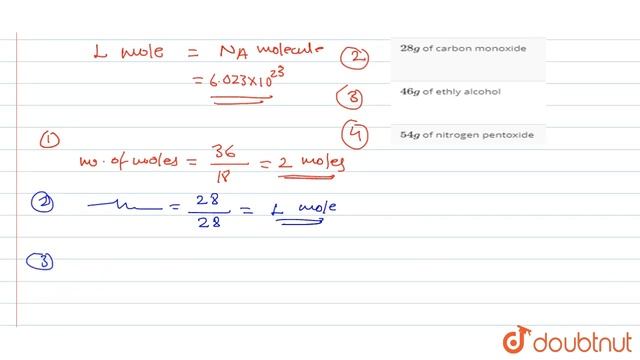 1 mole = NA molecule
= 6.023×10²³
(2) 28g of carbon monoxide
(3) 46g of ethly alcohol
(4) 54g of nitrogen pentoxide
(1)
no. of moles = 36/18 = 2 moles
(2) = 28/28 = 1 mole
(3)
doubtnut